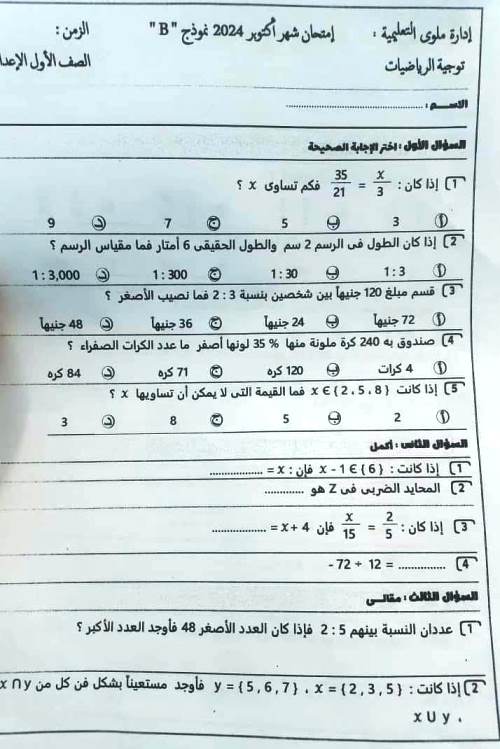 إدارة ملوى التعليمية : إمتحان شهر أكتوبر 2024 نموذج "B" الزمن :
توجية الرياضيات الصف الأول
الاسـم : ........................
السؤال الأول : اختر الإجابة الصحيحة
1 إذا كان : x/3 = 35/21 فكم تساوى x ؟
أ 3 ب 5 ج 7 د 9
2 إذا كان الطول فى الرسم 2 سم والطول الحقيقى 6 أمتار فما مقياس الرسم ؟
أ 1 : 3 ب 1 : 30 ج 1 : 300 د 1 : 3,000
3 قسم مبلغ 120 جنيهاً بين شخصين بنسبة 3 : 2 فما نصيب الأصغر ؟
أ 72 جنيهاً ب 24 جنيهاً ج 36 جنيهاً د 48 جنيهاً
4 صندوق به 240 كرة ملونة منها % 35 لونها أصفر ما عدد الكرات الصفراء ؟
أ 4 كرات ب 120 كره ج 71 كره د 84 كره
5 إذا كانت x ∈ { 2 , 5 , 8 } فما القيمة التى لا يمكن أن تساويها x ؟
أ 2 ب 5 ج 8 د 3
السؤال الثانى : أكمل
1 إذا كانت : x - 1 ∈ { 6 } فإن : x = ................
2 المحايد الضربى فى Z هو ............
3 إذا كان : 2/5 = x/15 فإن x + 4 = ................
4 - 72 ÷ 12 = ..............
السؤال الثالث : مقالـى
1 عددان النسبة بينهم 5 : 2 فإذا كان العدد الأصغر 48 فأوجد العدد الأكبر ؟
2 إذا كانت : x = { 2 , 3 , 5 } , y = { 5 , 6 , 7 } فأوجد مستعيناً بشكل فن كل من x ∩ y
, x ∪ y